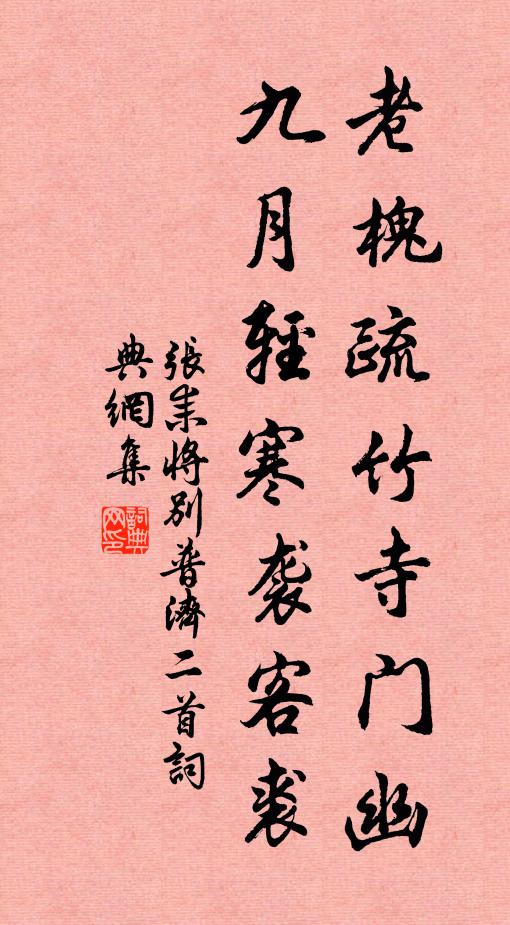 老槐疏竹寺门幽
九月轻寒袭客裘
張耒将别普濟二首詞
典網集
詞典网印